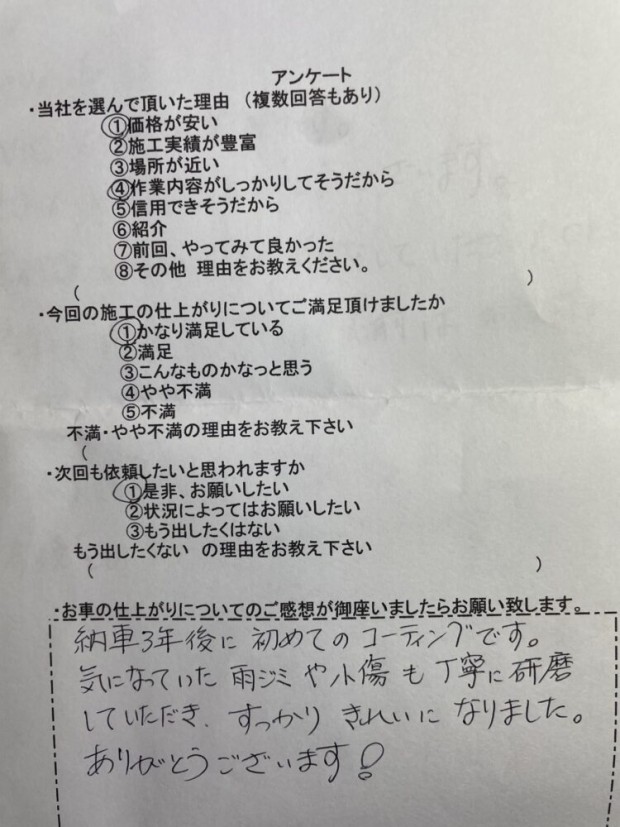 アンケート
・当社を選んで頂いた理由 (複数回答もあり)
①価格が安い
②施工実績が豊富
③場所が近い
④作業内容がしっかりしてそうだから
⑤信用できそうだから
⑥紹介
⑦前回、やってみて良かった
⑧その他 理由をお教えください。
( )
・今回の施工の仕上がりについてご満足頂けましたか
①かなり満足している
②満足
③こんなものかなっと思う
④やや不満
⑤不満
不満・やや不満の理由をお教え下さい
(
・次回も依頼したいと思われますか
①是非、お願いしたい
②状況によってはお願いしたい
③もう出したくはない
もう出したくない の理由をお教え下さい
( )
・お車の仕上がりについてのご感想が御座いましたらお願い致します。
納車3年後に初めてのコーティングです。
気になっていた雨ジミや小傷も丁寧に研磨
していただき、すっかりきれいになりました。
ありがとうございます!